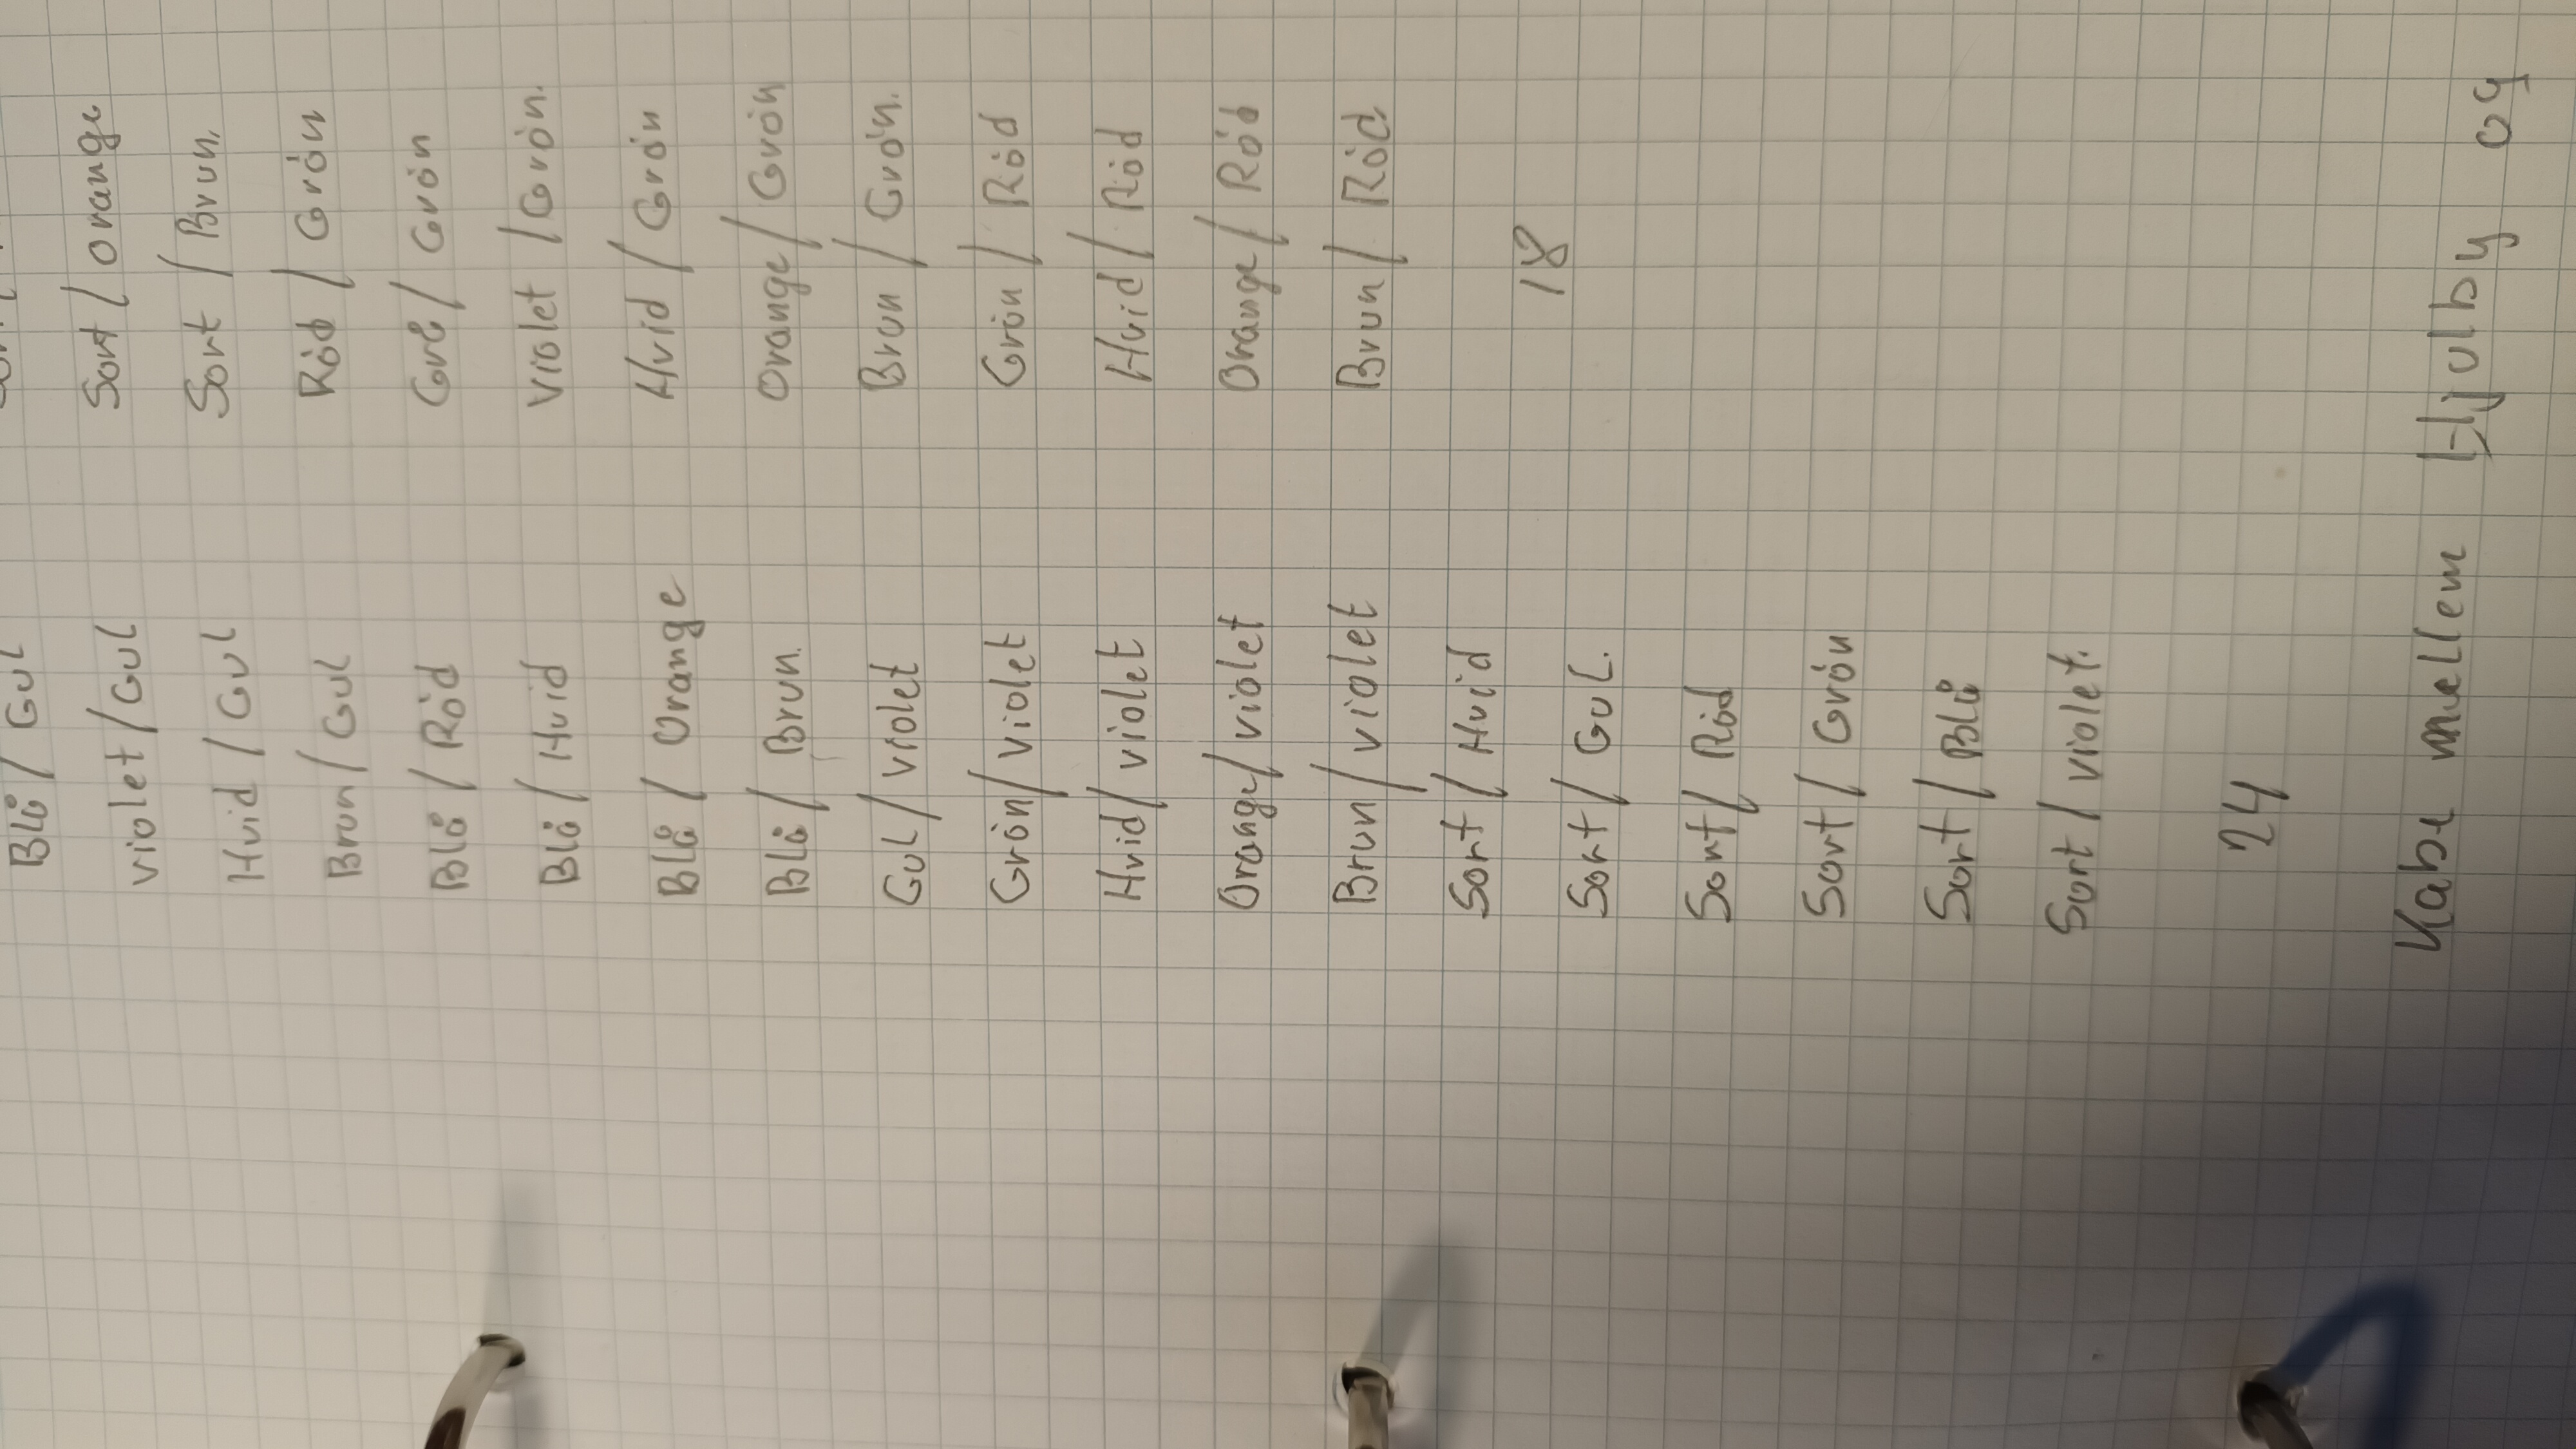 Blå / Gul
violet / Gul
Hvid / Gul
Brun / Gul
Blå / Röd
Blå / Hvid
Blå / Orange
Blå / Brun.
Gul / violet
Grön / violet
Hvid / violet
Orange / violet
Brun / violet
Sort / Hvid
Sort / Gul.
Sort / Röd
Sort / Grön
Sort / Blå
Sort / violet.
24
Sort / orange
Sort / Brun.
Röd / Grön
Grå / Grön
Violet / Grön.
Hvid / Grön
Orange / Grön
Brun / Grön.
Grön / Röd
Hvid / Röd
Orange / Röd
Brun / Röd
18
Kabe mellem Hjulby og